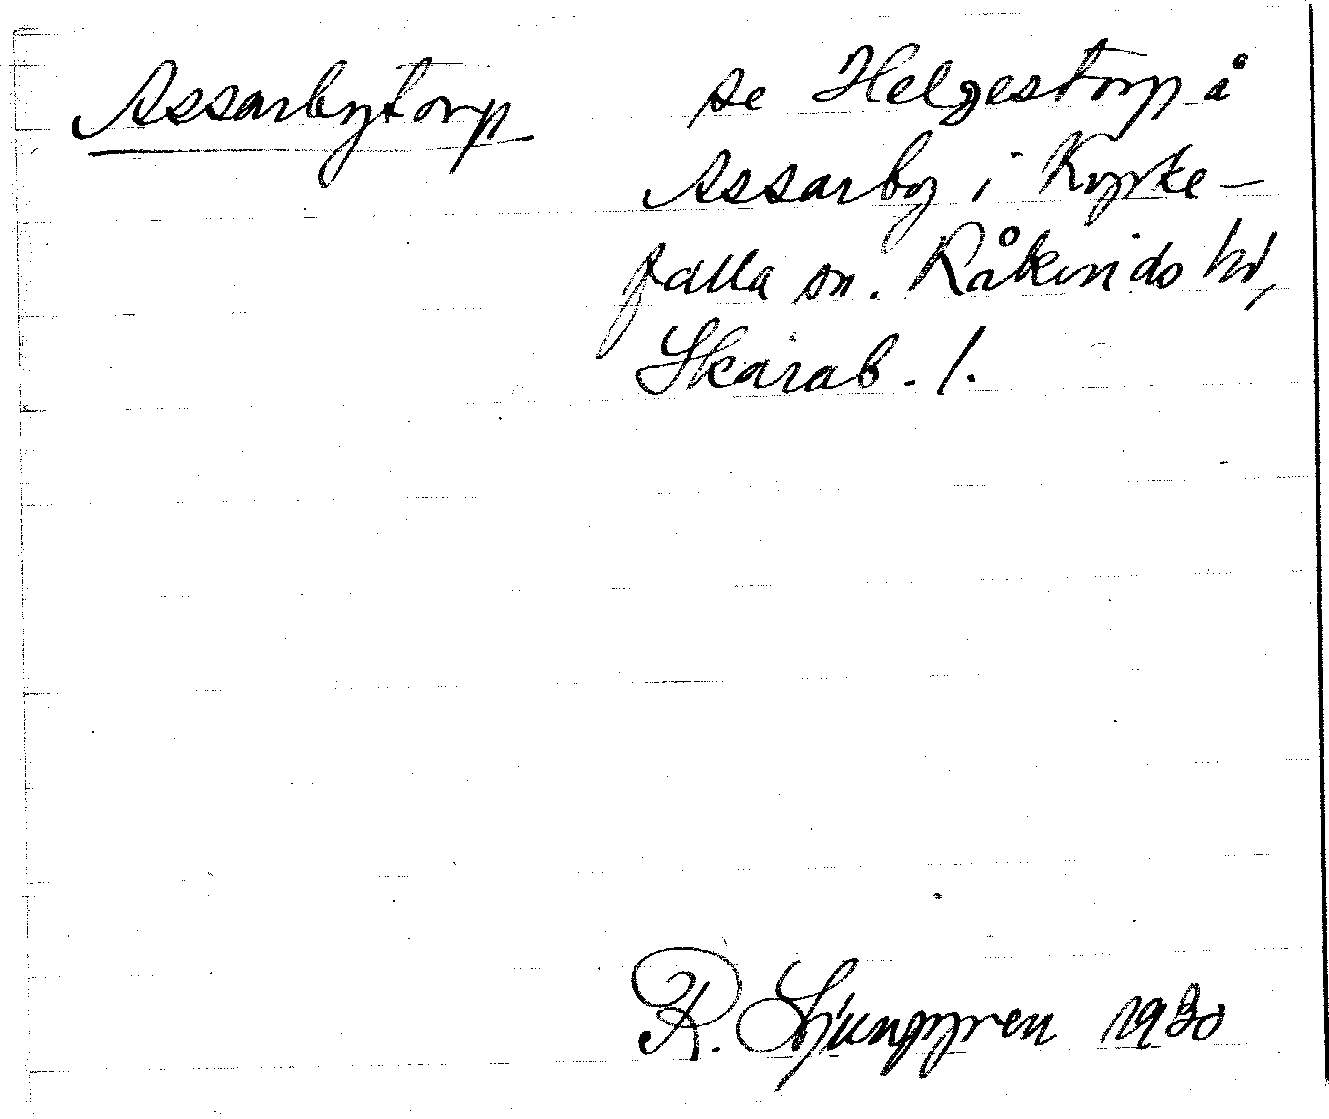 Assarbytorp
se Helgestorp å
Assarby i Kyrke-
falla sn. Kåkinds hd,
Skarab. l.
R. Ljunggren 1930